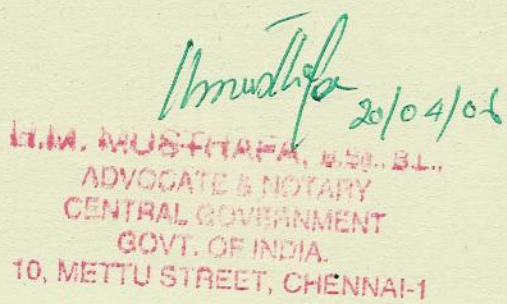 20/04/06
H.M. MUSTHAFA, B.Sc., B.L.,
ADVOCATE & NOTARY
CENTRAL GOVERNMENT
GOVT. OF INDIA.
10, METTU STREET, CHENNAI-1